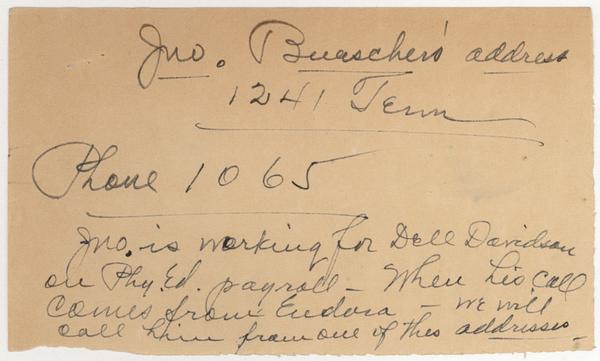 Jno. Buascher's address
1241 Tenn
Phone 1065
Jno. is working for Dell Davidson
on Phy. Ed. payroll - When his call
comes from Eudora - we will
call him from one of thes addresses -